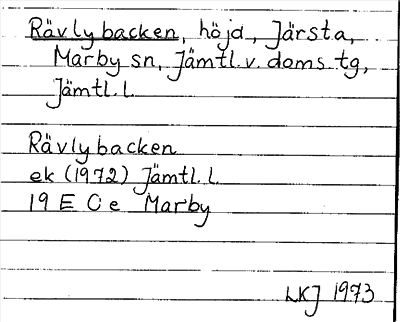 Rävlybacken, höjd, Järsta,
Marby sn, Jämtl. v. doms. tg,
Jämtl. l.
Rävlybacken
ek (1972) Jämtl. l.
19 E 0 e Marby
LKJ 1973